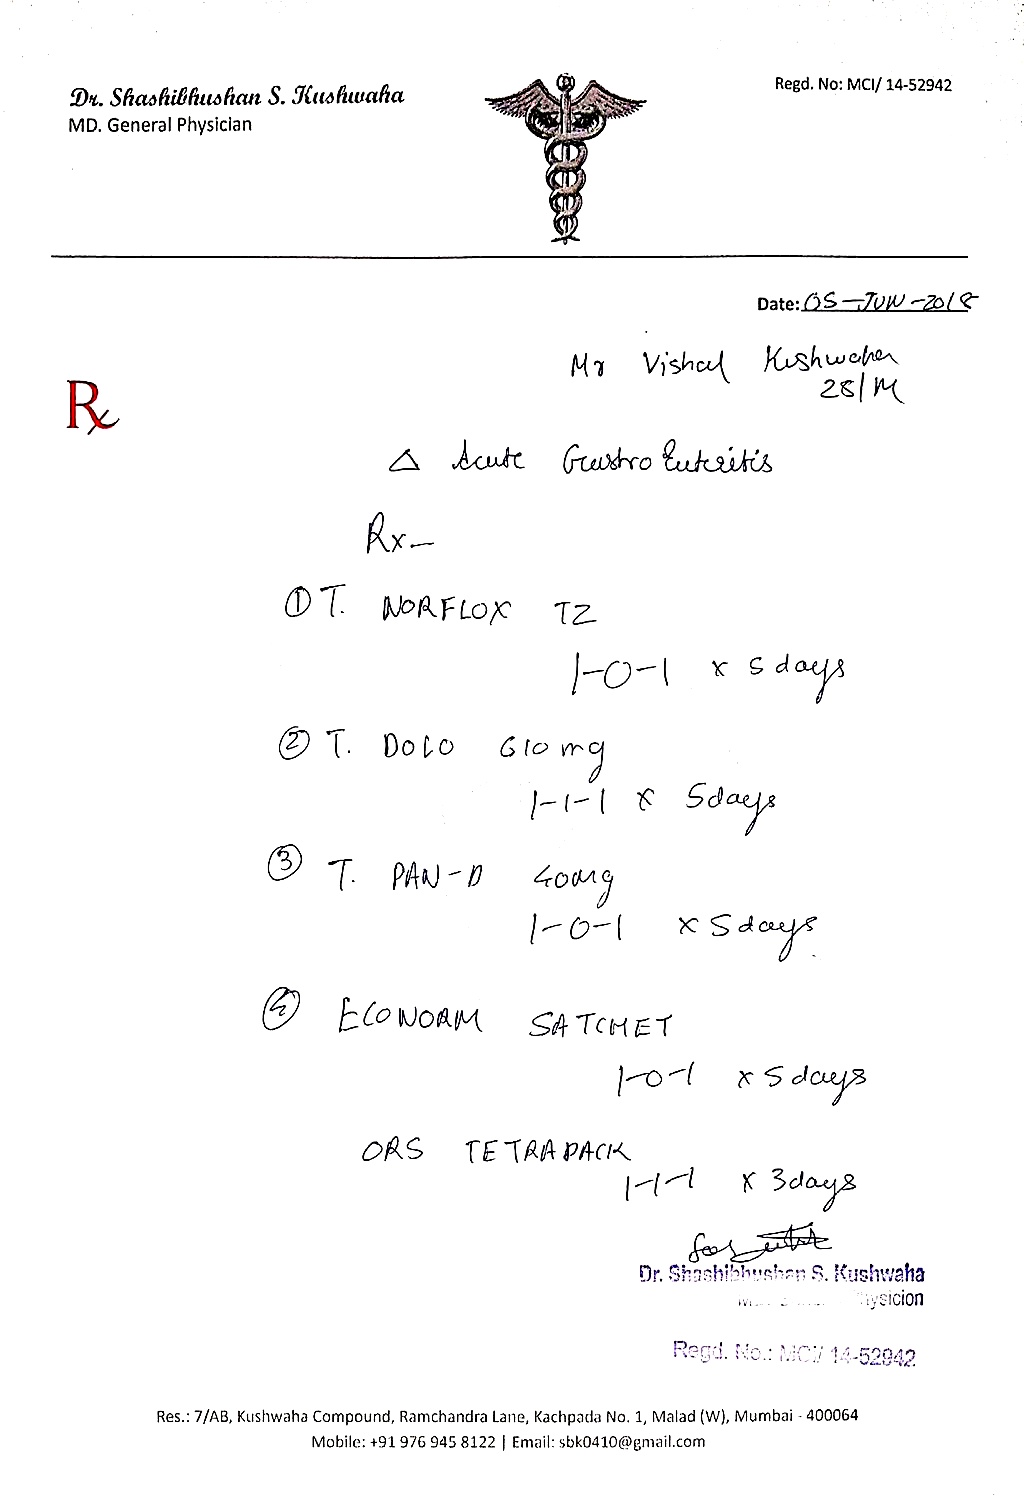 Dr. Shashibhushan S. Kushwaha
MD. General Physician
Regd. No: MCI/ 14-52942
Date: 05-JUN-2018
Mr Vishal Kushwaha
28/M
Rx
△ Acute Gastro Enteritis
Rx-
① T. NORFLOX TZ
1-0-1 x 5 days
② T. DOLO 610 mg
1-1-1 x 5 days
③ T. PAN-D 40mg
1-0-1 x 5 days
④ ECONORM SATCHET
1-0-1 x 5 days
ORS TETRAPACK
1-1-1 x 3 days
Dr. Shashibhushan S. Kushwaha
Regd. No.: MCI/ 14-52942
Res.: 7/AB, Kushwaha Compound, Ramchandra Lane, Kachpada No. 1, Malad (W), Mumbai - 400064
Mobile: +91 976 945 8122 | Email: sbk0410@gmail.com